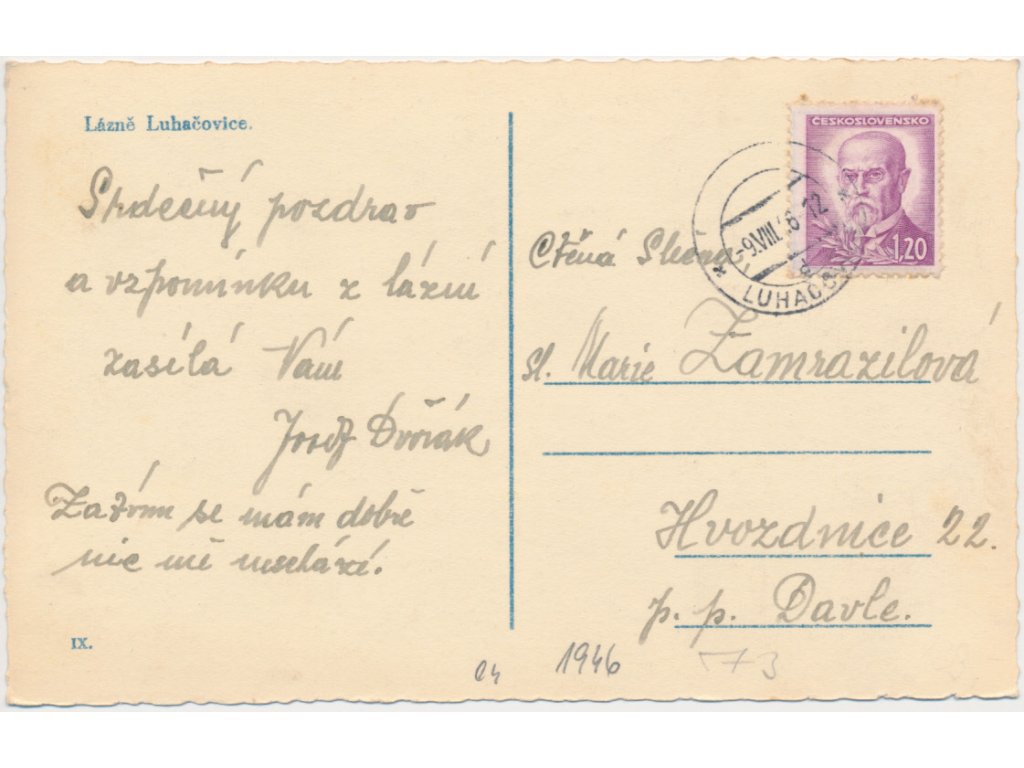 Lázně Luhačovice.
Srdečný pozdrav
a vzpomínku z lázní
zasílá Vám
Josef Dvořák
Zatím se mám dobře
nic mě neschází.
IX.
ČESKOSLOVENSKO
1,20
-9.VIII.46-12
LUHAČOV
Ctěná Slečna
sl. Marie Zamrazilová
Hvozdnice 22.
p. p. Davle.
1946
73